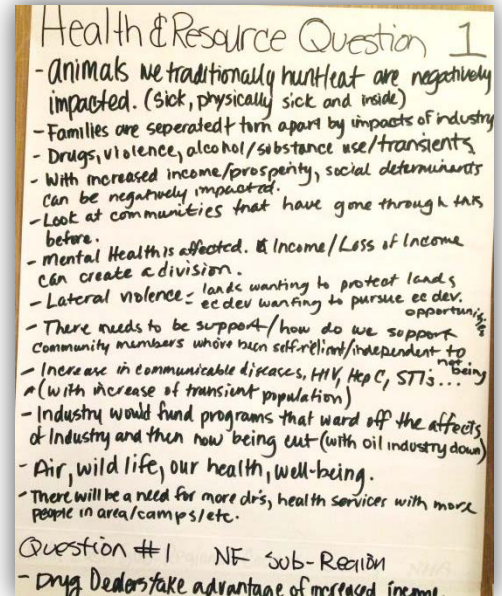 Health & Resource Question 1
- animals we traditionally hunt/eat are negatively
impacted. (sick, physically sick and inside)
- Families are seperated & torn apart by impacts of industry
- Drugs, violence, alcohol/substance use/transients
- With increased income/prosperity, social determinants
can be negatively impacted.
- Look at communities that have gone through this
before.
- Mental Health is affected. Income/Loss of Income
can create a division.
- Lateral violence = lands wanting to protect lands
ec dev wanting to pursue ec dev.
opportunities
- There needs to be support/how do we support
community members who're been self-reliant/independent to
not being
- Increase in communicable diseases, HIV, Hep C, STI's...
(with increase of transient population)
- Industry would fund programs that ward off the affects
of Industry and then now being cut (with oil industry down)
- Air, wild life, our health, well-being.
- There will be a need for more drs, health services with more
people in area/camps/etc.
Question #1 NE Sub-Region
- Drug Dealers take advantage of increased income.